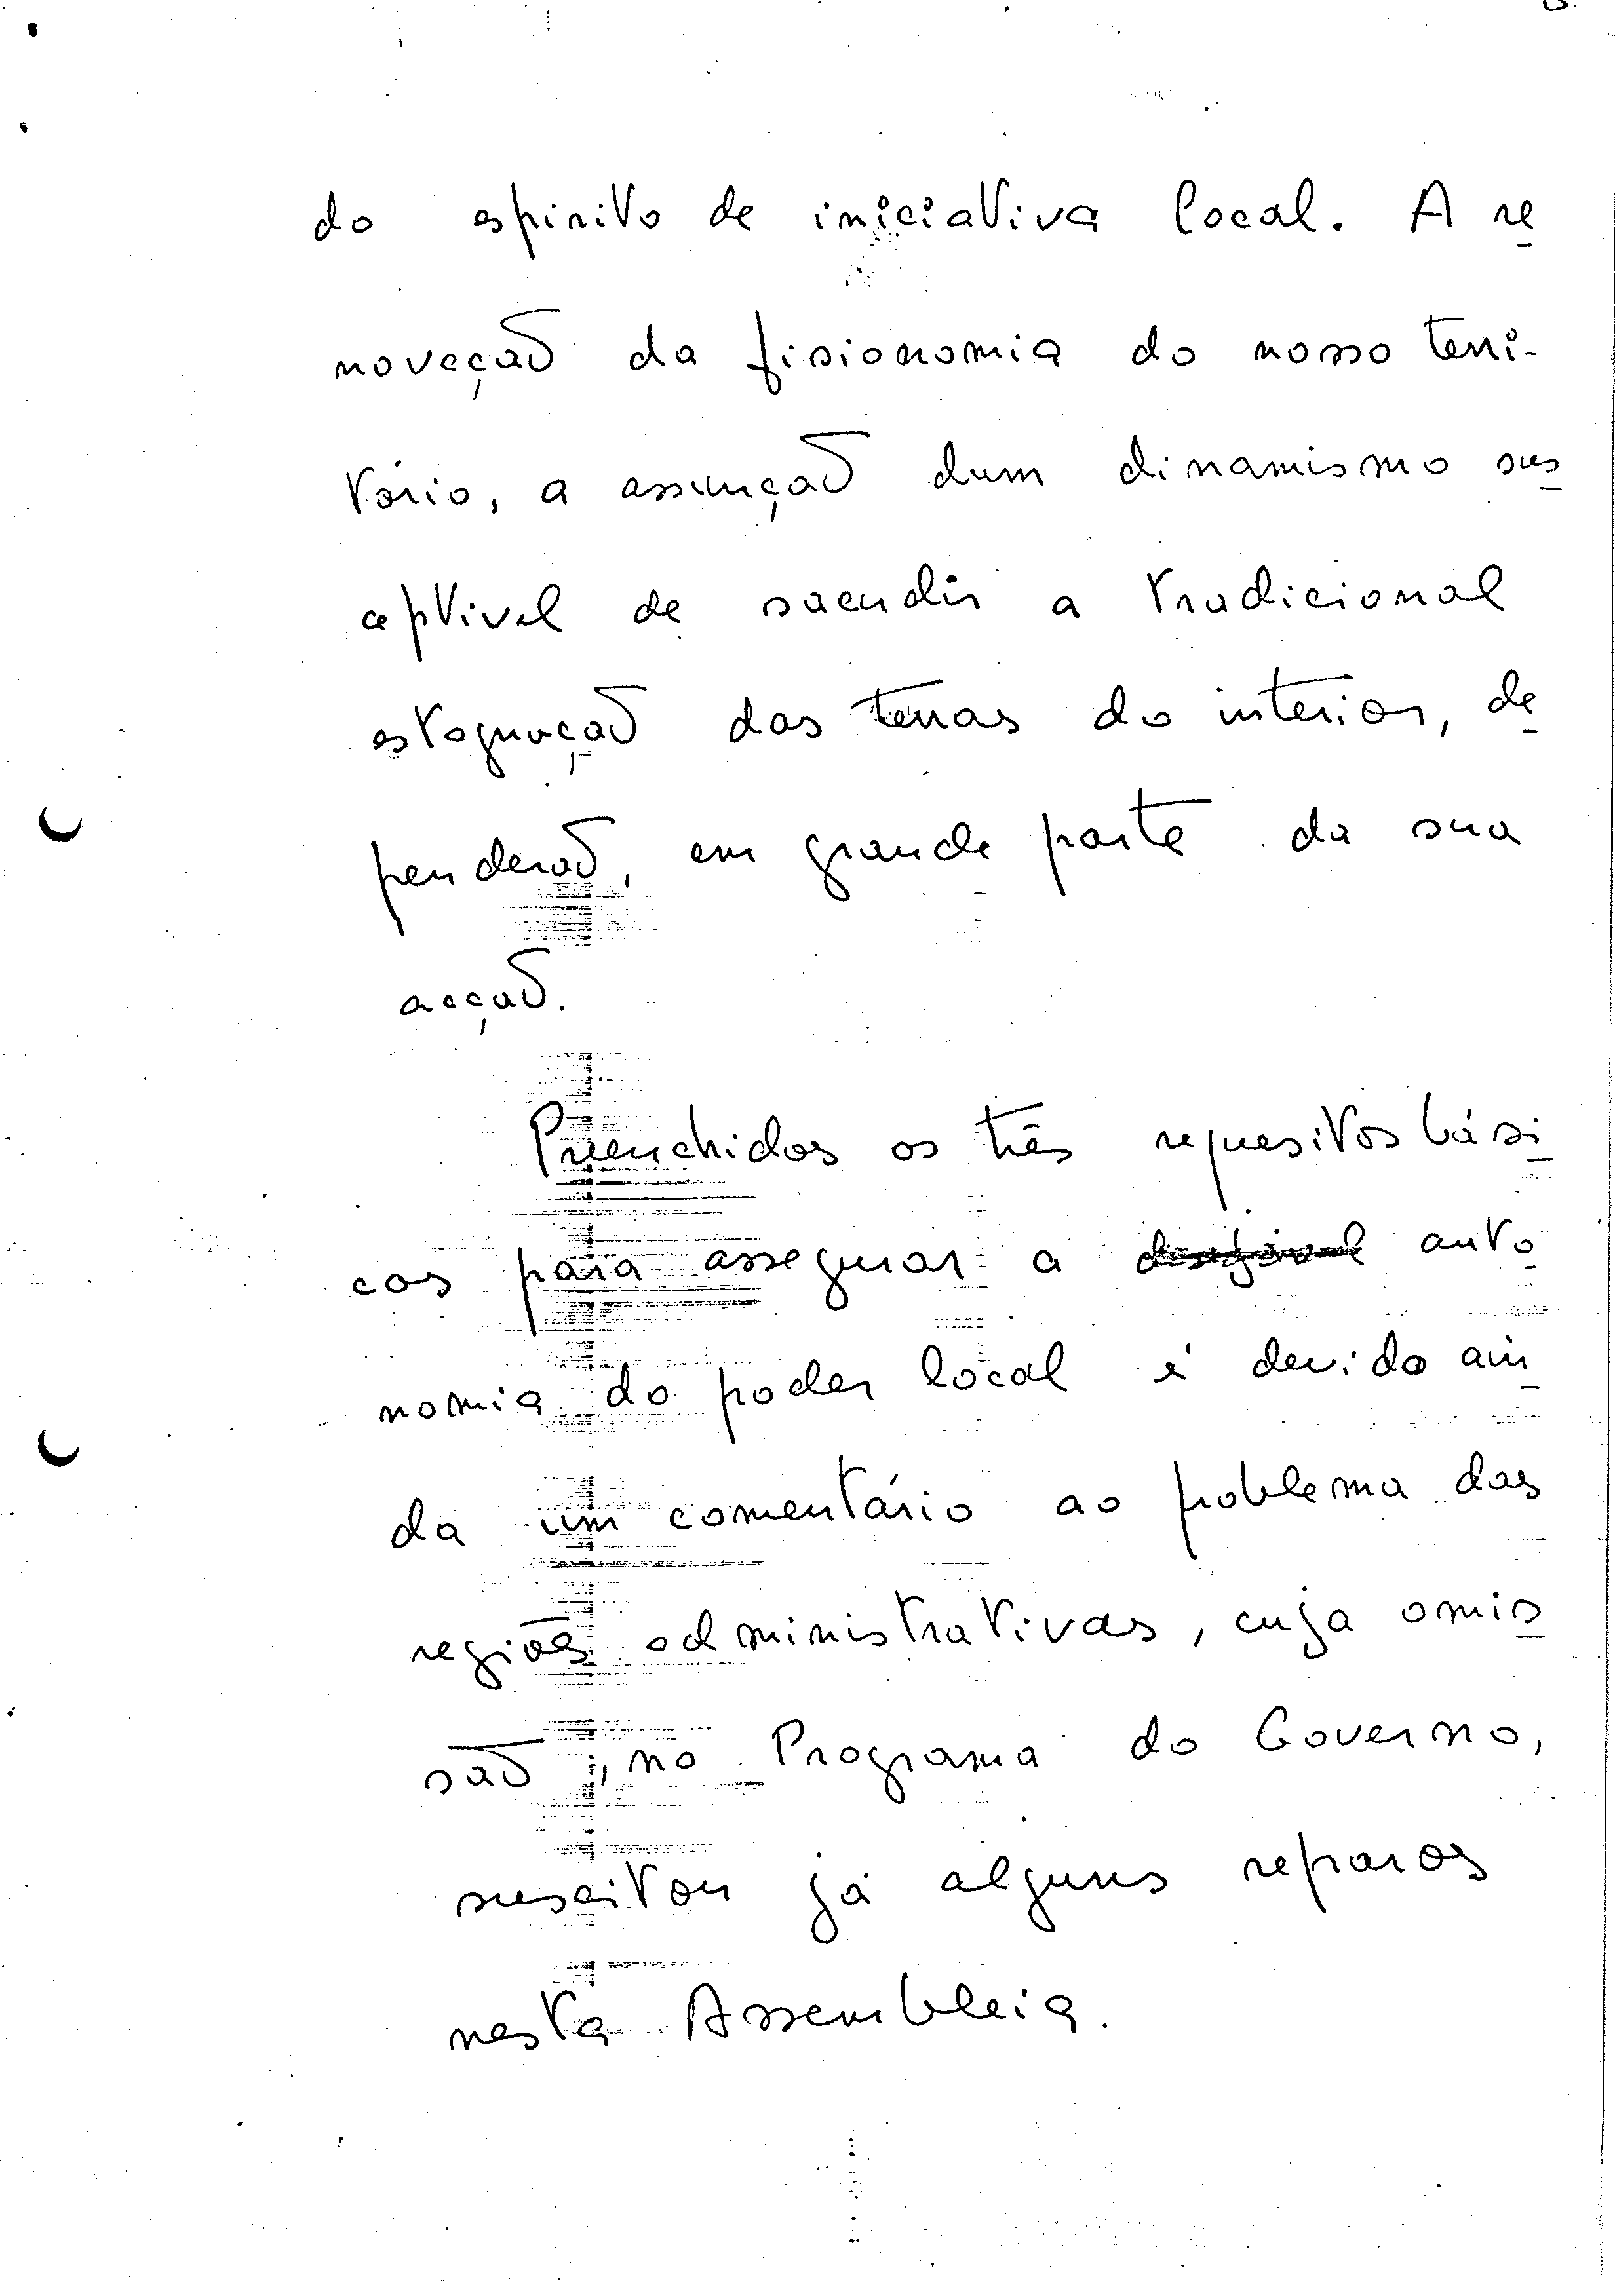 do espirito de iniciativa local. A re
novação da fisionomia do nosso terri-
tório, a assunção dum dinamismo sus
ceptivel de sacudir a tradicional
estagnação das terras do interior, de
penderão, em grande parte da sua
acção.
Preenchidos os três requesitos bási
cos para assegurar a auto
nomia do poder local é devido ain
da um comentário ao problema das
regiões administrativas, cuja omis
são, no Programa do Governo,
suscitou já alguns reparos
nesta Assembleia.